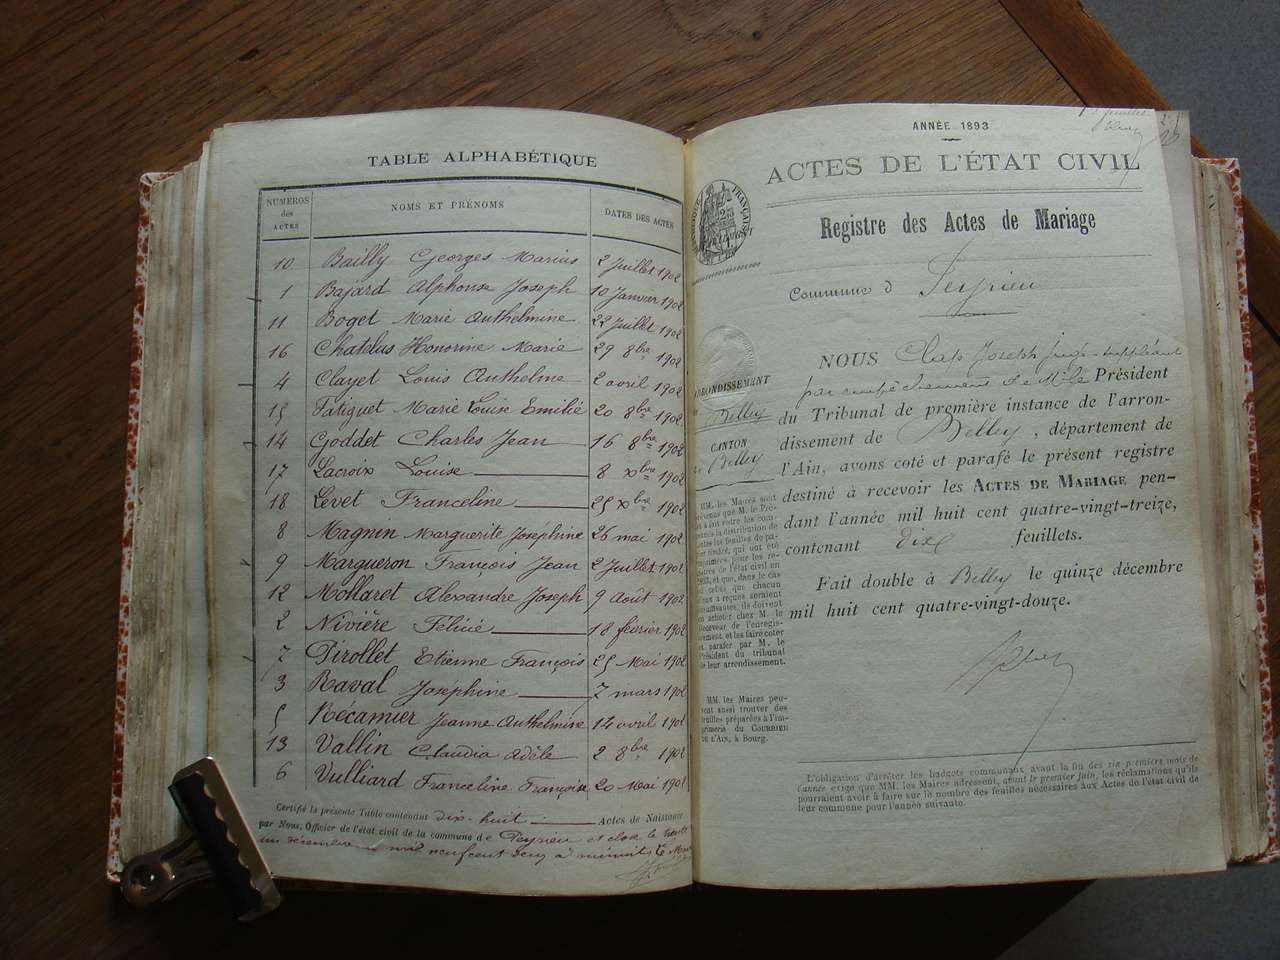 TABLE ALPHABÉTIQUE
NUMÉROS des ACTES NOMS ET PRÉNOMS DATES DES ACTES
10 Bailly Georges Marius 2 Juillet 1902
1 Bajard Alphonse Joseph 10 Janvier 1902
11 Boget Marie Anthelmine 22 Juillet 1902
16 Chatelus Honorine Marie 29 8bre 1902
4 Clayet Louis Anthelme 2 avril 1902
15 Fatiguet Marie Louise Emilie 20 8bre 1902
14 Goddet Charles Jean 16 8bre 1902
17 Lacroix Louise 8 Xbre 1902
18 Levet Franceline 25 Xbre 1902
8 Magnin Marguerite Joséphine 26 mai 1902
9 Margueron François Jean 2 Juillet 1902
12 Mollaret Alexandre Joseph 9 Août 1902
2 Nivière Félicie 18 février 1902
7 Pirollet Etienne François 25 Mai 1902
3 Raval Joséphine 7 mars 1902
5 Récamier Jeanne Anthelmine 14 avril 1902
13 Vallin Claudia Adèle 2 8bre 1902
6 Vulliard Franceline Françoise 20 Mai 1902
Certifié la présente Table contenant dix-huit Actes de Naissance
par Nous, Officier de l'état civil de la commune de Peyrieu et clos le trente
un décembre mil neuf cent deux à minuit
ANNÉE 1893
ACTES DE L'ÉTAT CIVIL
Registre des Actes de Mariage
Commune d Peyrieu
ARRONDISSEMENT
Belley
CANTON
de Belley
NOUS Clap Joseph juge-suppléant
par empêchement de Mr le Président
du Tribunal de première instance de l'arron-
dissement de Belley, département de
l'Ain, avons coté et parafé le présent registre
destiné à recevoir les ACTES DE MARIAGE pen-
dant l'année mil huit cent quatre-vingt-treize,
contenant dix feuillets.
Fait double à Belley le quinze décembre
mil huit cent quatre-vingt-douze.
MM. les Maires sont
prévenus que M. le Pré-
MM. les Maires peu-
vent aussi trouver des
feuilles préparées à l'im-
primerie du COURRIER
DE L'AIN, à Bourg.
L'obligation d'arrêter les budgets communaux avant la fin des six premiers mois de
l'année exige que MM. les Maires adressent, avant le premier juin, les réclamations qu'ils
pourraient avoir à faire sur le nombre des feuilles nécessaires aux Actes de l'état civil de
leur commune pour l'année suivante.